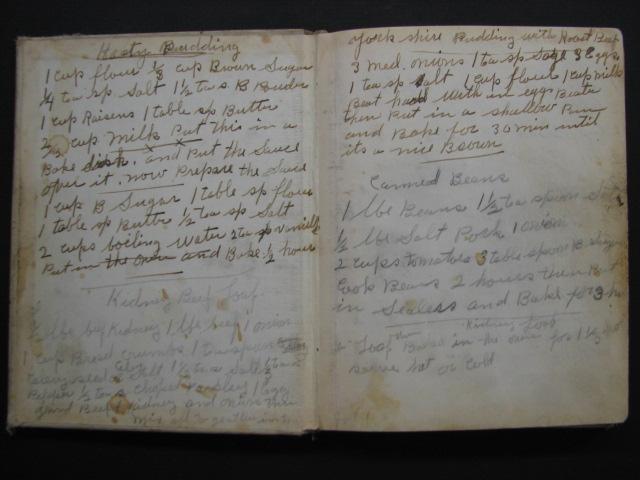 Hasty Pudding
1 cup flour ⅓ cup Brown Sugar
¼ tea sp Salt 1½ teas B Powder
1 cup Raisens 1 table sp Butter
⅔ cup Milk Put this in a
Bake dish. and Put the Sauce
over it. now Prepare the Sauce
1 cup B Sugar 1 table sp flour
1 table sp Butter ½ tea sp Salt
2 cups boiling Water 2 tea sp vanilla
Put in the oven and Bake ½ hour
Kidney Beef Loaf
lbe beef Kidney 1 lbe beef 1 onion
1 cup Bread crumbs 1 teaspoon
1½ tea Salt
Pepper ½ tea s chopped Parsley 1 Egg
Grind Beef Kidney and onion then
Mix all together
York shire Pudding with Roast Beef
3 med. onions 1 tea sp Sage 3 Eggs
1 tea sp Salt 1 cup flour 1 cup milk
Beat hard With in eggs Beater
then Put in a shallow Pan
and Bake for 30 min until
its a nice Brown
Canned Beans
1 lbe Beans 1½ tea spoon Salt
½ lbe Salt Pork 1 onion
2 cups tomatoes 3 table spoon B sugar
Cook Beans 2 hours then Put
in Sealers and Bake for 3 hr
Kidney Loaf
Loaf Pan Bake in the oven for 1½ hr
serve hot or Cold